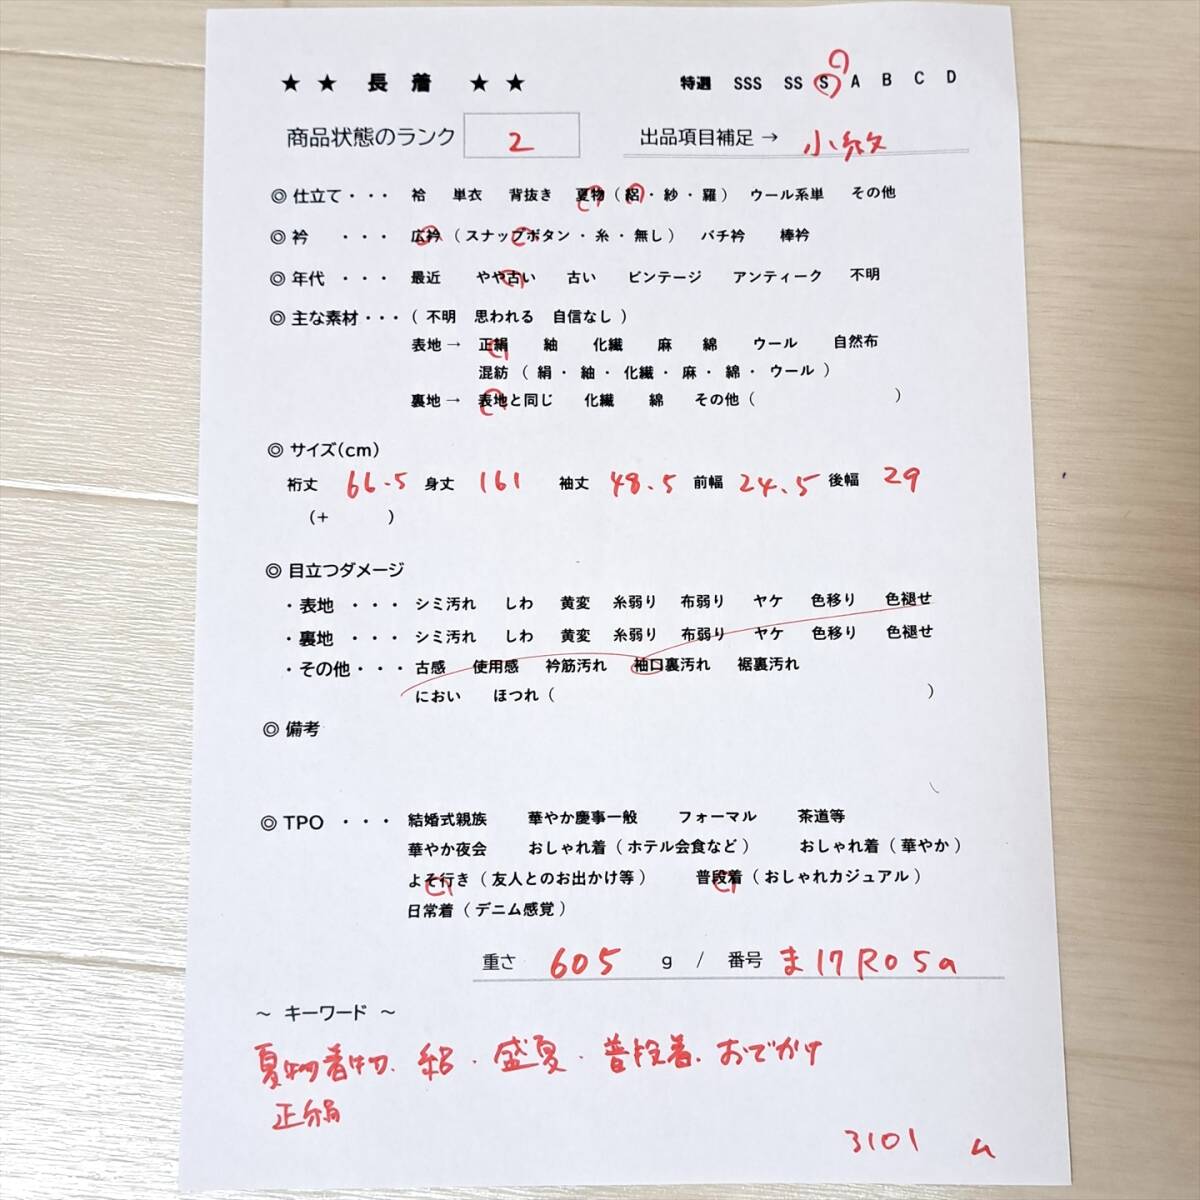 ★ ★ 長 着 ★ ★ 特選 SSS SS S A B C D
商品状態のランク 2 出品項目補足 → 小紋
◎ 仕立て ・・・ 袷 単衣 背抜き 夏物 ( 絽 ・ 紗 ・ 羅 ) ウール系単 その他
◎ 衿 ・・・ 広衿 ( スナップボタン ・ 糸 ・ 無し ) バチ衿 棒衿
◎ 年代 ・・・ 最近 やや古い 古い ビンテージ アンティーク 不明
◎ 主な素材・・・ ( 不明 思われる 自信なし )
表地 → 正絹 紬 化繊 麻 綿 ウール 自然布
混紡 ( 絹 ・ 紬 ・ 化繊 ・ 麻 ・ 綿 ・ ウール )
裏地 → 表地と同じ 化繊 綿 その他 ( )
◎ サイズ(cm)
裄丈 66.5 身丈 161 袖丈 48.5 前幅 24.5 後幅 29
(+ )
◎ 目立つダメージ
・表地 ・・・ シミ汚れ しわ 黄変 糸弱り 布弱り ヤケ 色移り 色褪せ
・裏地 ・・・ シミ汚れ しわ 黄変 糸弱り 布弱り ヤケ 色移り 色褪せ
・その他・・・ 古感 使用感 衿筋汚れ 袖口裏汚れ 裾裏汚れ
におい ほつれ ( )
◎ 備考
◎ TPO ・・・ 結婚式親族 華やか慶事一般 フォーマル 茶道等
華やか夜会 おしゃれ着 ( ホテル会食など ) おしゃれ着 ( 華やか )
よそ行き ( 友人とのお出かけ等 ) 普段着 ( おしゃれカジュアル )
日常着 ( デニム感覚 )
重さ 605 g / 番号 ま17R05a
～ キーワード ～
夏物着物. 絽 ・ 盛夏 ・ 普段着. おでかけ
正絹
3101